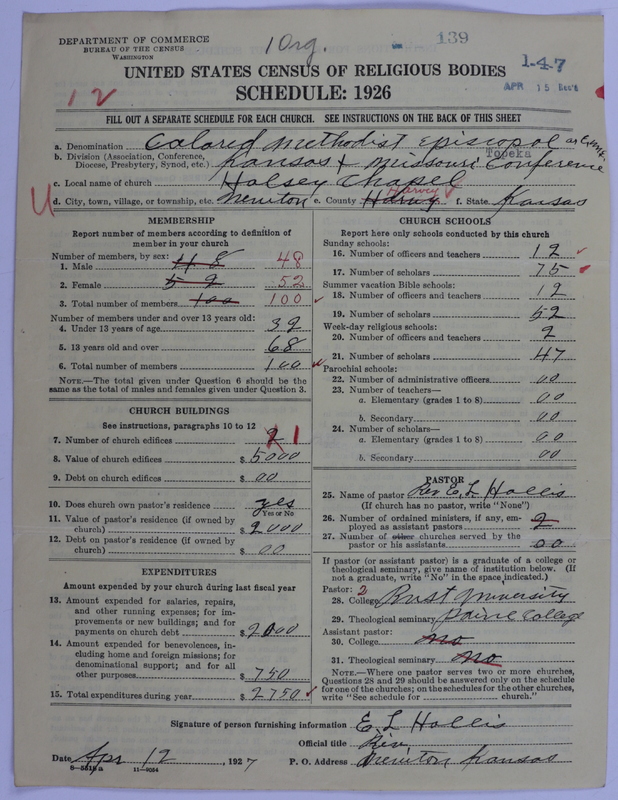 DEPARTMENT OF COMMERCE
BUREAU OF THE CENSUS
WASHINGTON
1 Org.
139
1-4-7
APR 15
12
UNITED STATES CENSUS OF RELIGIOUS BODIES
SCHEDULE: 1926
FILL OUT A SEPARATE SCHEDULE FOR EACH CHURCH. SEE INSTRUCTIONS ON THE BACK OF THIS SHEET
a. Denomination Colored Methodist Episcopal
b. Division (Association, Conference, Diocese, Presbytery, Synod, etc.) Kansas & Missouri Conference
Topeka
c. Local name of church Halsey Chapel
d. City, town, village, or township, etc. Newton e. County Harvy Harvey f. State Kansas
MEMBERSHIP
Report number of members according to definition of
member in your church
Number of members, by sex:
1. Male 48 48
2. Female 52 52
3. Total number of members 100 100
Number of members under and over 13 years old:
4. Under 13 years of age 32
5. 13 years old and over 68
6. Total number of members 100
NOTE.—The total given under Question 6 should be the
same as the total of males and females given under Question 3.
CHURCH BUILDINGS
See instructions, paragraphs 10 to 12
7. Number of church edifices 2 1
8. Value of church edifices $ 5000
9. Debt on church edifices $ 00
10. Does church own pastor's residence yes
Yes or No
11. Value of pastor's residence (if owned by
church) $ 2000
12. Debt on pastor's residence (if owned by
church) $ 00
EXPENDITURES
Amount expended by your church during last fiscal year
13. Amount expended for salaries, repairs,
and other running expenses; for im-
provements or new buildings; and for
payments on church debt $ 2000
14. Amount expended for benevolences, in-
cluding home and foreign missions; for
denominational support; and for all
other purposes $ 750
15. Total expenditures during year $ 2750
CHURCH SCHOOLS
Report here only schools conducted by this church
Sunday schools:
16. Number of officers and teachers 12
17. Number of scholars 75
Summer vacation Bible schools:
18. Number of officers and teachers 12
19. Number of scholars 52
Week-day religious schools:
20. Number of officers and teachers 2
21. Number of scholars 47
Parochial schools:
22. Number of administrative officers 00
23. Number of teachers—
a. Elementary (grades 1 to 8) 00
b. Secondary 00
24. Number of scholars—
a. Elementary (grades 1 to 8) 00
b. Secondary 00
PASTOR
25. Name of pastor Rev E. L Hollis
(If church has no pastor, write "None")
26. Number of ordained ministers, if any, em-
ployed as assistant pastors 2
27. Number of other churches served by the
pastor or his assistants 00
If pastor (or assistant pastor) is a graduate of a college or
theological seminary, give name of institution below. (If
not a graduate, write "No" in the space indicated.)
Pastor: 2
28. College Rust University
29. Theological seminary Paine College
Assistant pastor:
30. College no
31. Theological seminary no
NOTE.—Where one pastor serves two or more churches,
Questions 28 and 29 should be answered only on the schedule
for one of the churches; on the schedules for the other churches,
write "See schedule for church."
Signature of person furnishing information E L Hollis
Official title Rev.
Date Apr 12, 1927 P. O. Address Newton Kansas
8—5518a 11—9054